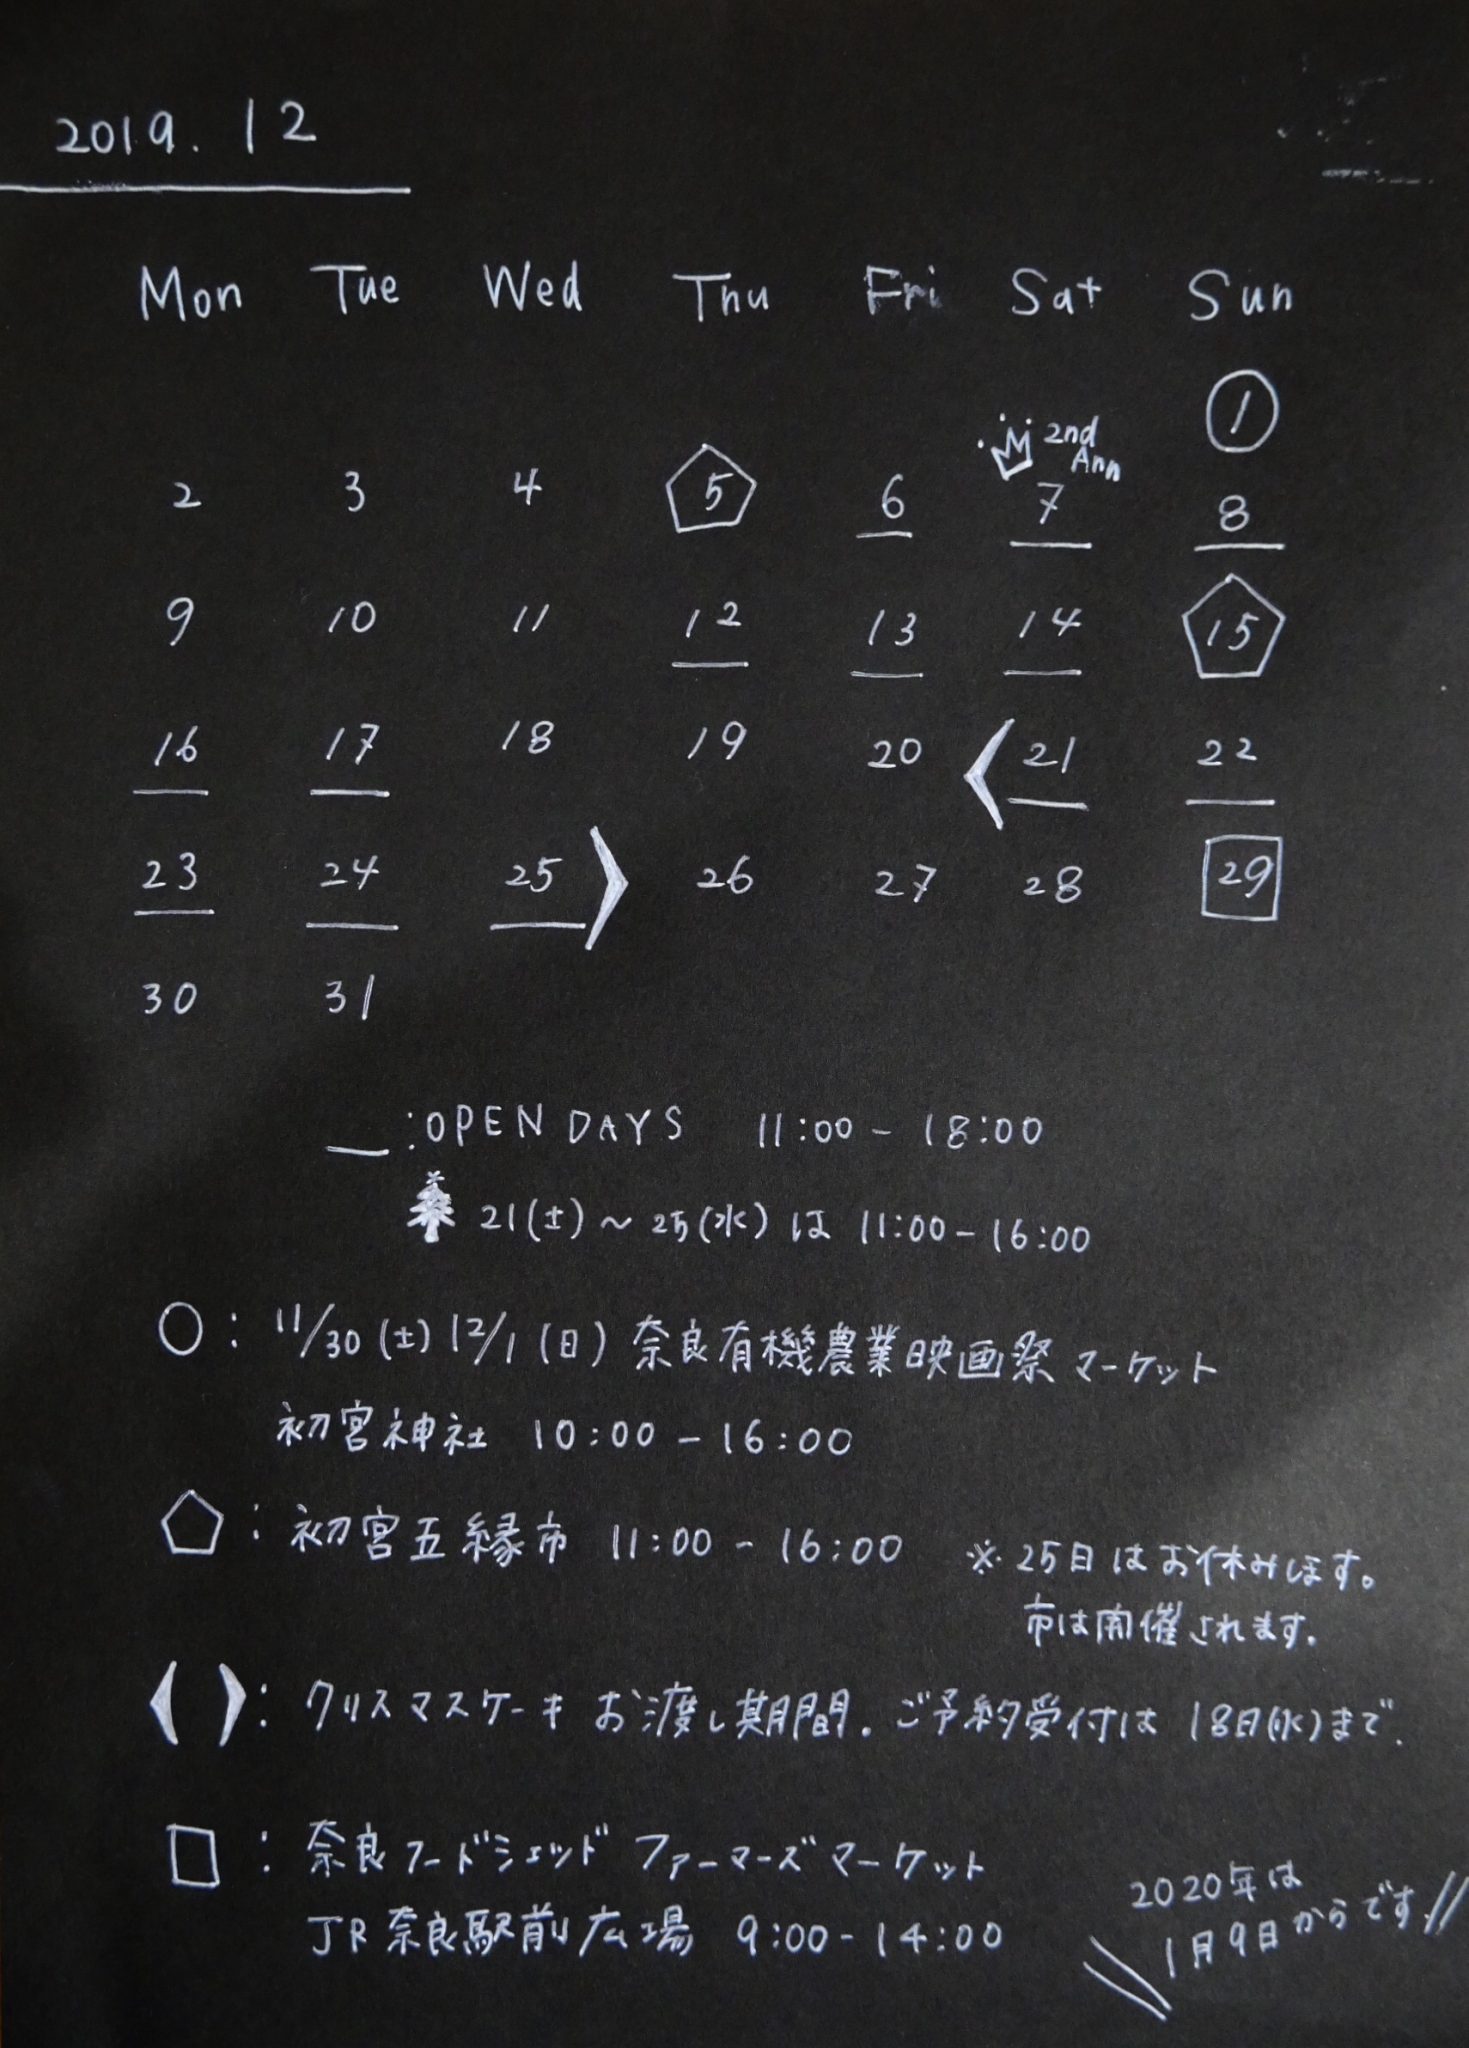 2019. 12
Mon Tue Wed Thu Fri Sat Sun
1
2nd
Ann
2 3 4 5 6 7 8
9 10 11 12 13 14 15
16 17 18 19 20 21 22
23 24 25 26 27 28 29
30 31
:OPEN DAYS 11:00 - 18:00
21(土)～25(水)は 11:00-16:00
○: 11/30(土)12/1(日)奈良有機農業映画祭マーケット
初宮神社 10:00-16:00
: 初宮五縁市 11:00-16:00 ※25日はお休みします。
市は開催されます。
〈 〉: クリスマスケーキお渡し期間. ご予約受付は18日(水)まで.
□: 奈良フードシェッド ファーマーズマーケット
JR奈良駅前広場 9:00-14:00
2020年は
1月9日からです//